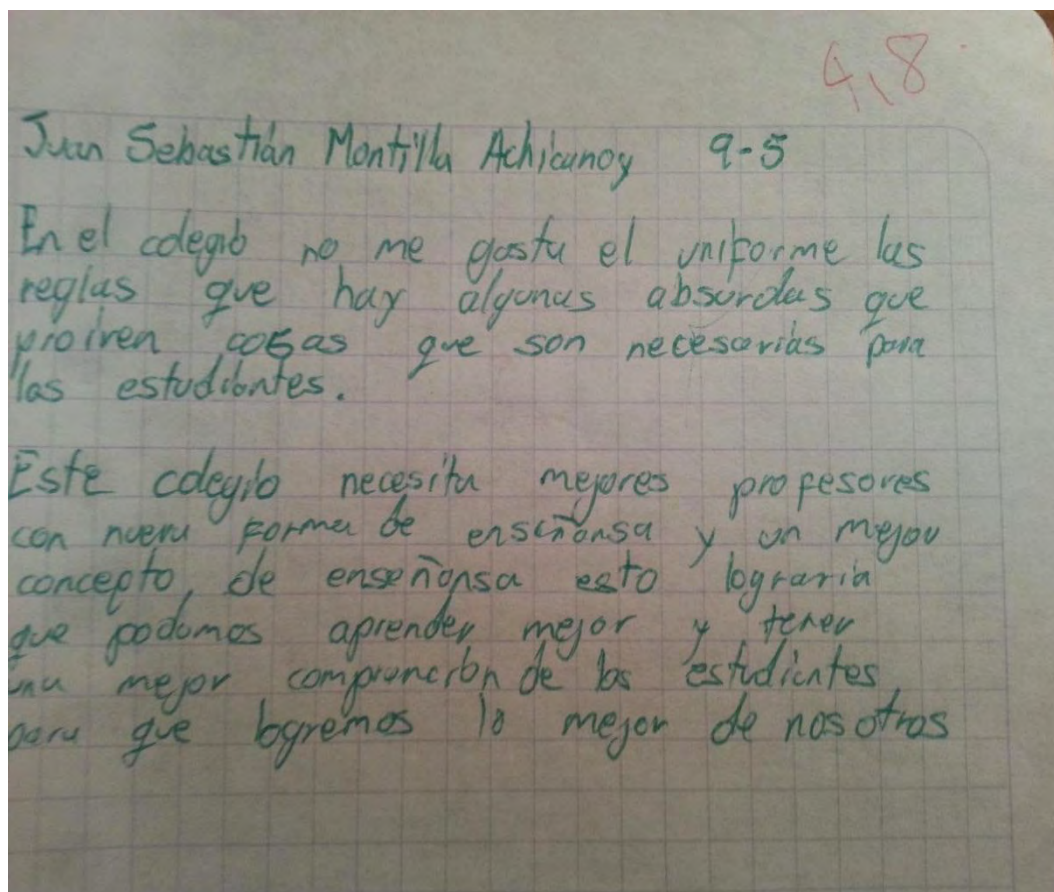 4,8
Juan Sebastián Montilla Achicanoy 9-5
En el colegio no me gusta el uniforme las
reglas que hay algunas absurdas que
proiven cosas que son necesarias para
los estudiantes.
Este colegio necesita mejores profesores
con nueva forma de enseñansa y un mejor
concepto, de enseñansa esto lograria
que podamos aprender mejor y tener
una mejor comprención de los estudiantes
para que logremos lo mejor de nosotros